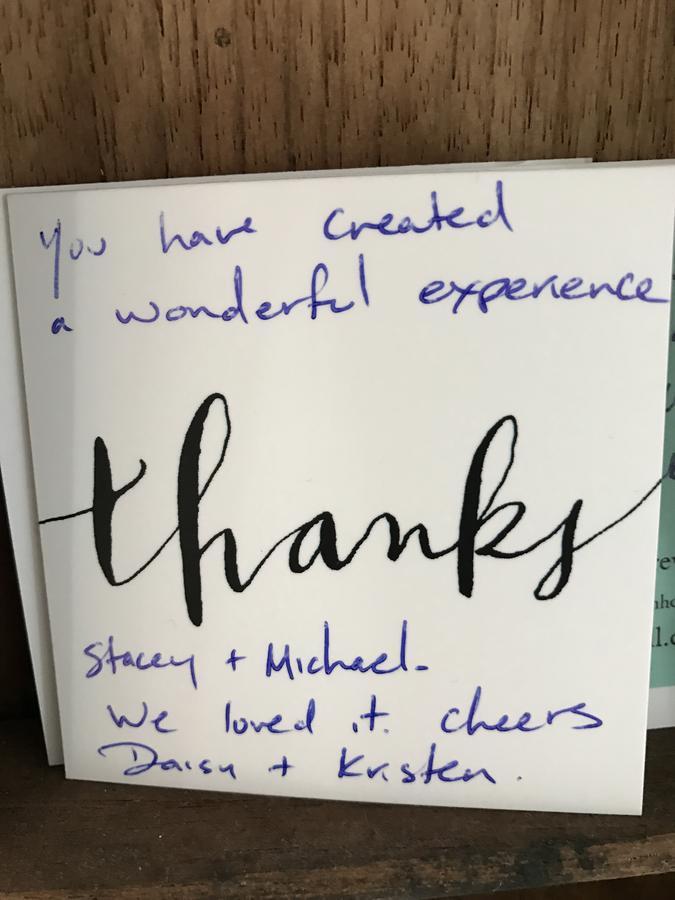 You have created
a wonderful experience
thanks
Stacey + Michael-
We loved it. cheers
Daisy + Kristen.